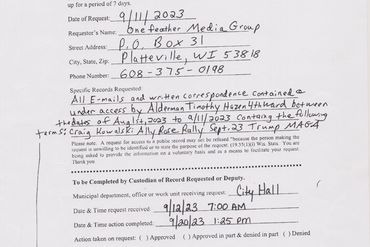 up for a period of 7 days.
Date of Request: 9/11/2023
Requester's Name: Onefeather Media Group
Street Address: P.O. BOX 31
City, State, Zip: Platteville, WI 53818
Phone Number: 608-375-0198
Specific Records Requested:
All E-mails and written correspondence contained
under access by Alderman Timothy between
the dates of Aug 14, 2023 to 9/11/2023 Containg the following
terms: Craig Kowalski Ally Rose Rally Sept. 23 Trump MAGA
Please note. A request for access to a public record may not be refused "because the person making the
request is unwilling to be identified or to state the purpose of the request. (19.35(1)(i) Wis. Stats. You are
being asked to provide the information on a voluntary basis and as a means to facilitate your request.
Thank you
To be Completed by Custodian of Record Requested or Deputy.
Municipal department, office or work unit receiving request: City Hall
Date & Time request received: 9/12/23 7:00 AM
Date & Time action completed: 9/20/23 1:25 pm
Action taken on request: ( ) Approved ( ) Approved in part & denied in part ( ) Denied